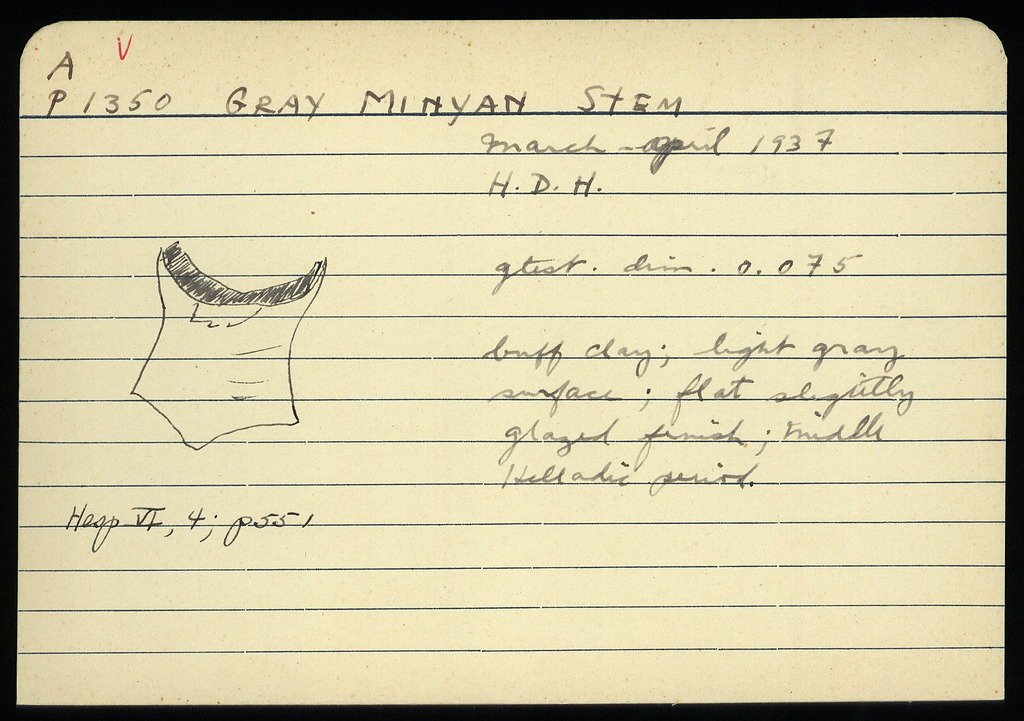 A V
P 1350 GRAY MINYAN STEM
March - April 1937
H. D. H.
gtest. dim. 0.075
buff clay; light gray
surface; flat slightly
glazed finish; Middle
Helladic period.
Hesp VI, 4; p551